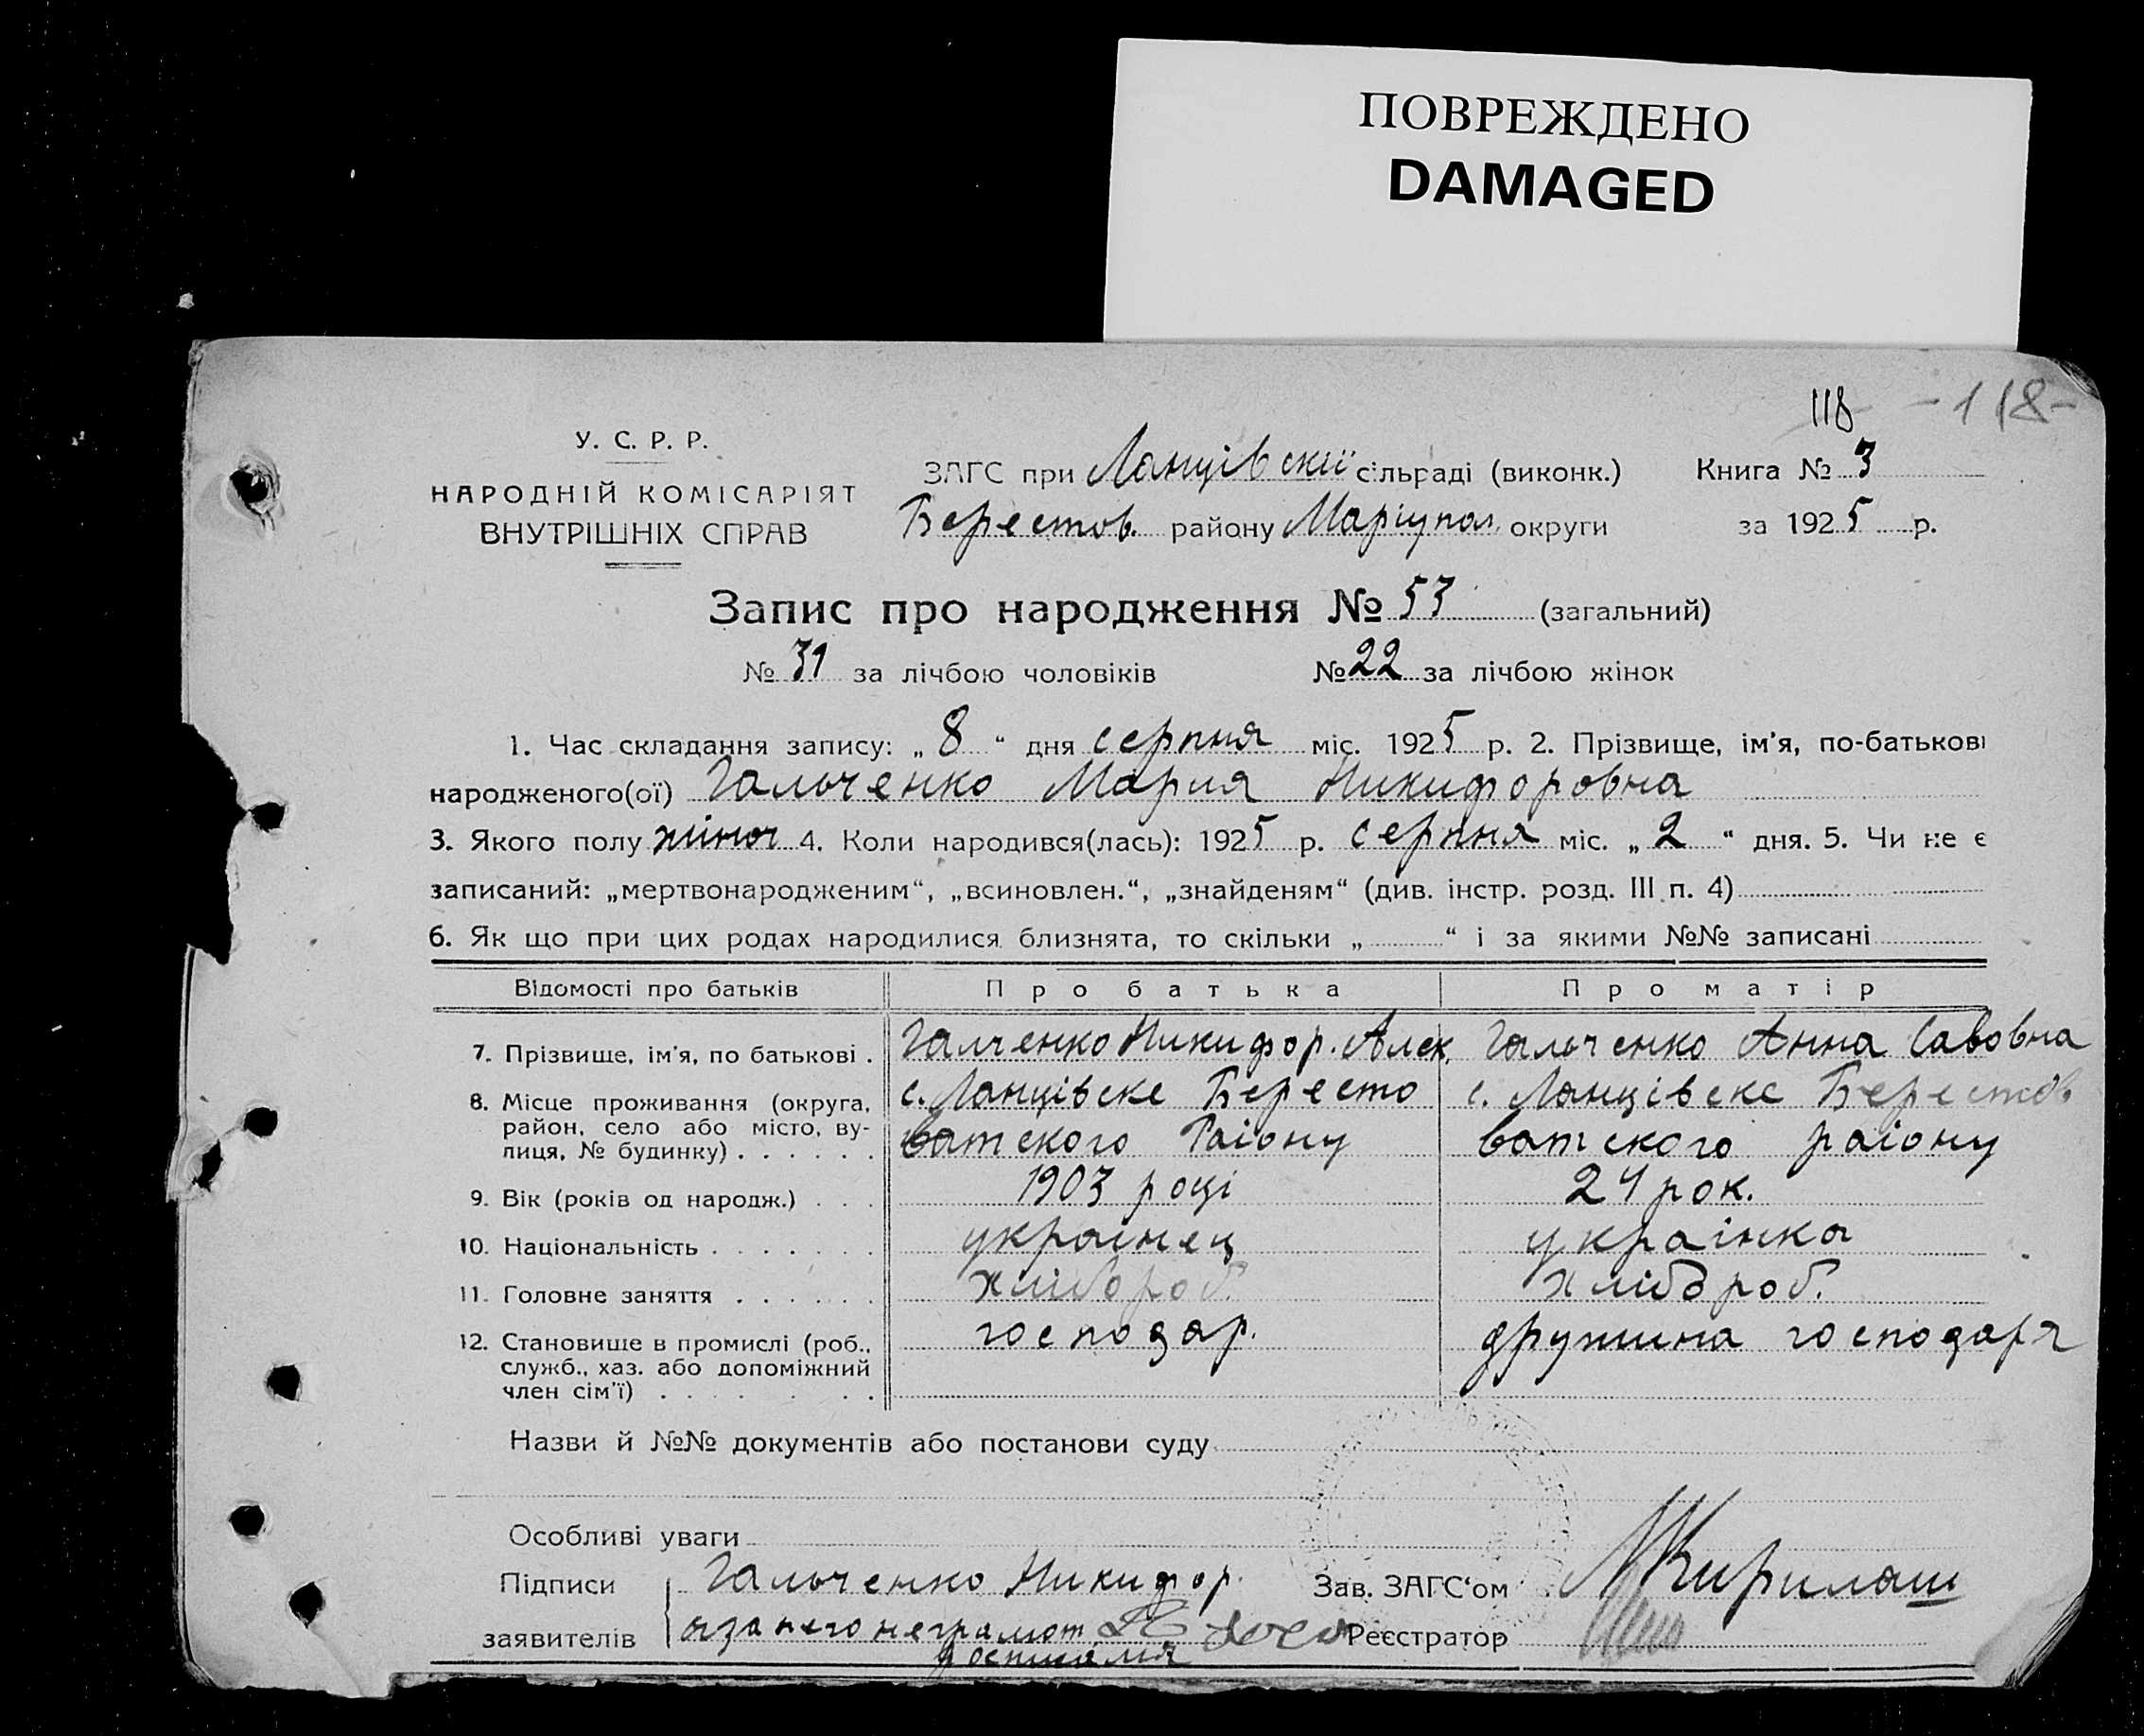 ПОВРЕЖДЕНО
DAMAGED
118 -118-
У. С. Р. Р.
НАРОДНІЙ КОМІСАРІЯТ
ВНУТРІШНІХ СПРАВ
ЗАГС при Ланцівскій сільраді (виконк.) Книга № 3
Берестов. району Маріупол. округи за 1925 р.
Запис про народження № 53 (загальний)
№ 31 за лічбою чоловіків № 22 за лічбою жінок
1. Час складання запису: „ 8 “ дня серпня міс. 1925 р. 2. Прізвище, ім'я, по-батькові
народженого(ої) Гальченко Мария Никифоровна
3. Якого полу жіноч 4. Коли народився(лась): 1925 р. серпня міс. „ 2 “ дня. 5. Чи не є
записаний: „мертвонародженим“, „всиновлен.“, „знайденям“ (див. інстр. розд. III п. 4)
6. Як що при цих родах народилися близнята, то скільки „ “ і за якими №№ записані
Відомості про батьків Про батька Про матір
7. Прізвище, ім'я, по батькові . Галченко Никифор. Алек. Гальченко Анна Савовна
8. Місце проживання (округа, с. Ланцівске Бересто с. Ланцівске Берестов
район, село або місто, ву-
лиця, № будинку) . . . . . . ватского Раіону ватского раіону
9. Вік (років од народж.) . . . 1903 році 24 рок.
10. Національність . . . . . . . українец українка
11. Головне заняття . . . . . . хлібороб. хлібороб.
12. Становище в промислі (роб., господар. дружина господаря
служб., хаз. або допоміжний
член сім'ї) . . . . . . .
Назви й №№ документів або постанови суду
Особливі уваги
Підписи Гальченко Никифор. Зав. ЗАГС'ом Кирилаш
заявителів а за него неграмот. Реєстратор